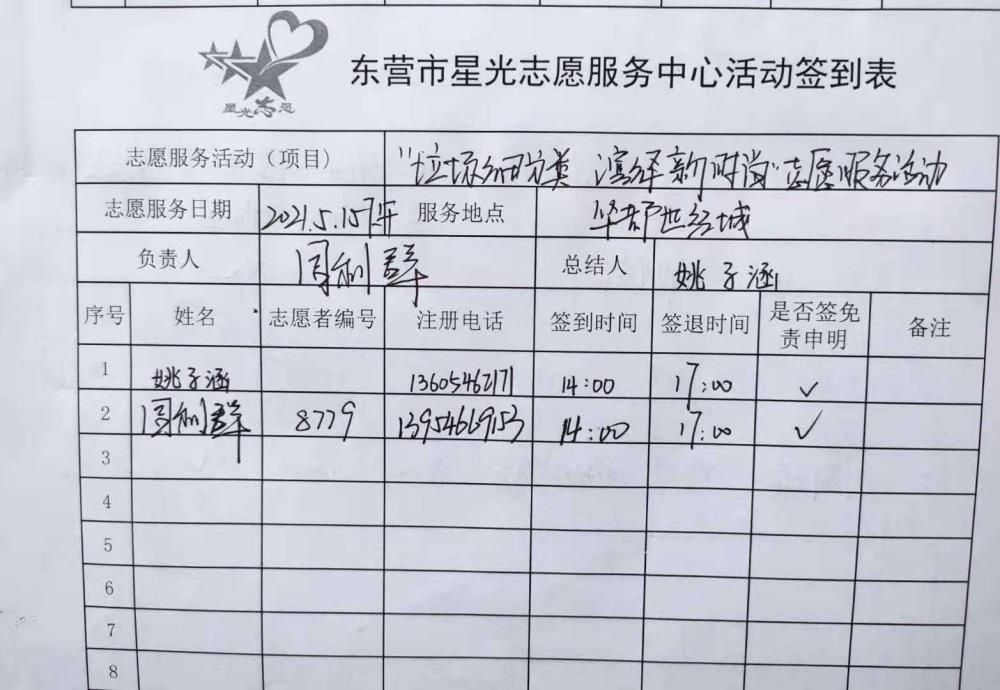 星光志愿
东营市星光志愿服务中心活动签到表
志愿服务活动（项目） “垃圾细分类 演绎新时尚”志愿服务活动
志愿服务日期 2021.5.15下午 服务地点 华都世纪城
负责人 周利群 总结人 姚子涵
序号 姓名 志愿者编号 注册电话 签到时间 签退时间 是否签免责申明 备注
1 姚子涵 13605462171 14:00 17:00 ✓
2 周利群 8779 13954669153 14:00 17:00 ✓
3
4
5
6
7
8